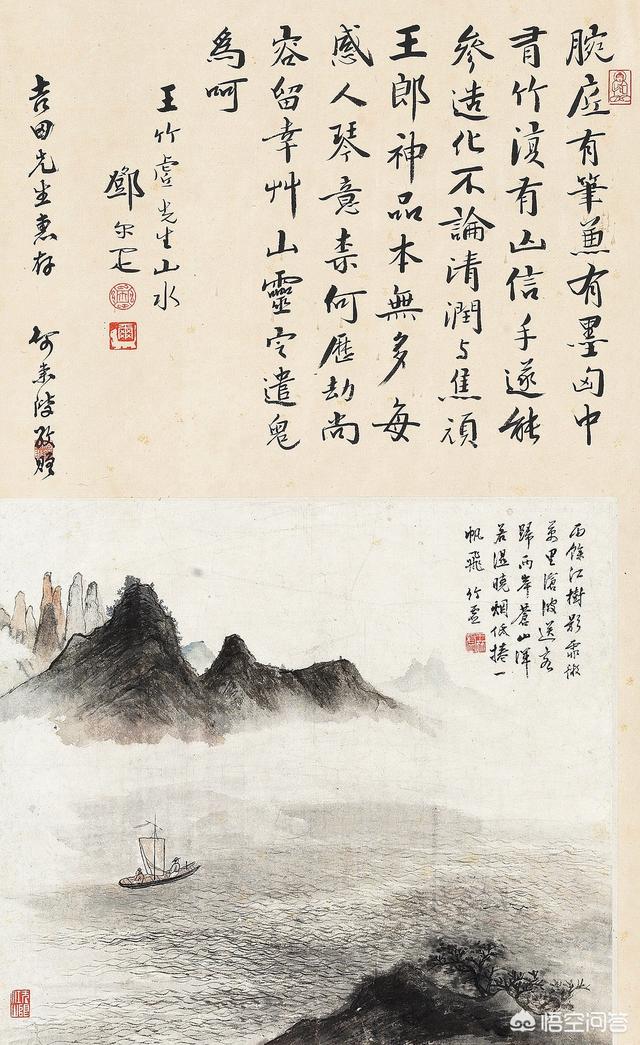 腕底有筆兼有墨匈中
有竹有山信手遂能
參造化不論清潤与焦頑
王郎神品本無多每
感人琴意柰何歷劫尚
容留幸艸山靈定遣鬼
爲呵
王竹虛先生山水
鄧尔疋
吉田先生惠存 何敬贈
雨餘江樹影霏微
萬里滄波送客
歸兩岸蒼山渾
若濕曉烟低捲一
帆飛 竹虛
悟空问答